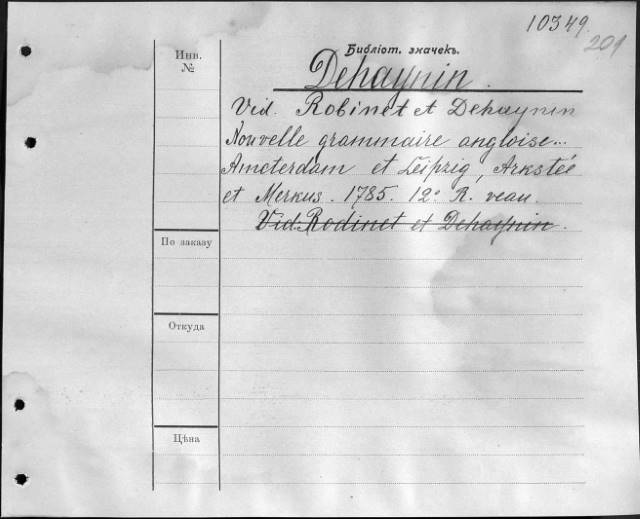 10349.
209
Инв.
№
Библіот. значекъ.
Dehaynin.
Vid. Robinet et Dehaynin
Nouvelle grammaire angloise...
Amsterdam et Leipzig, Arkstée
et Merkus. 1785. 12° R. veau.
Vid. Rodinet et Dehaynin.
По заказу
Откуда
Цѣна